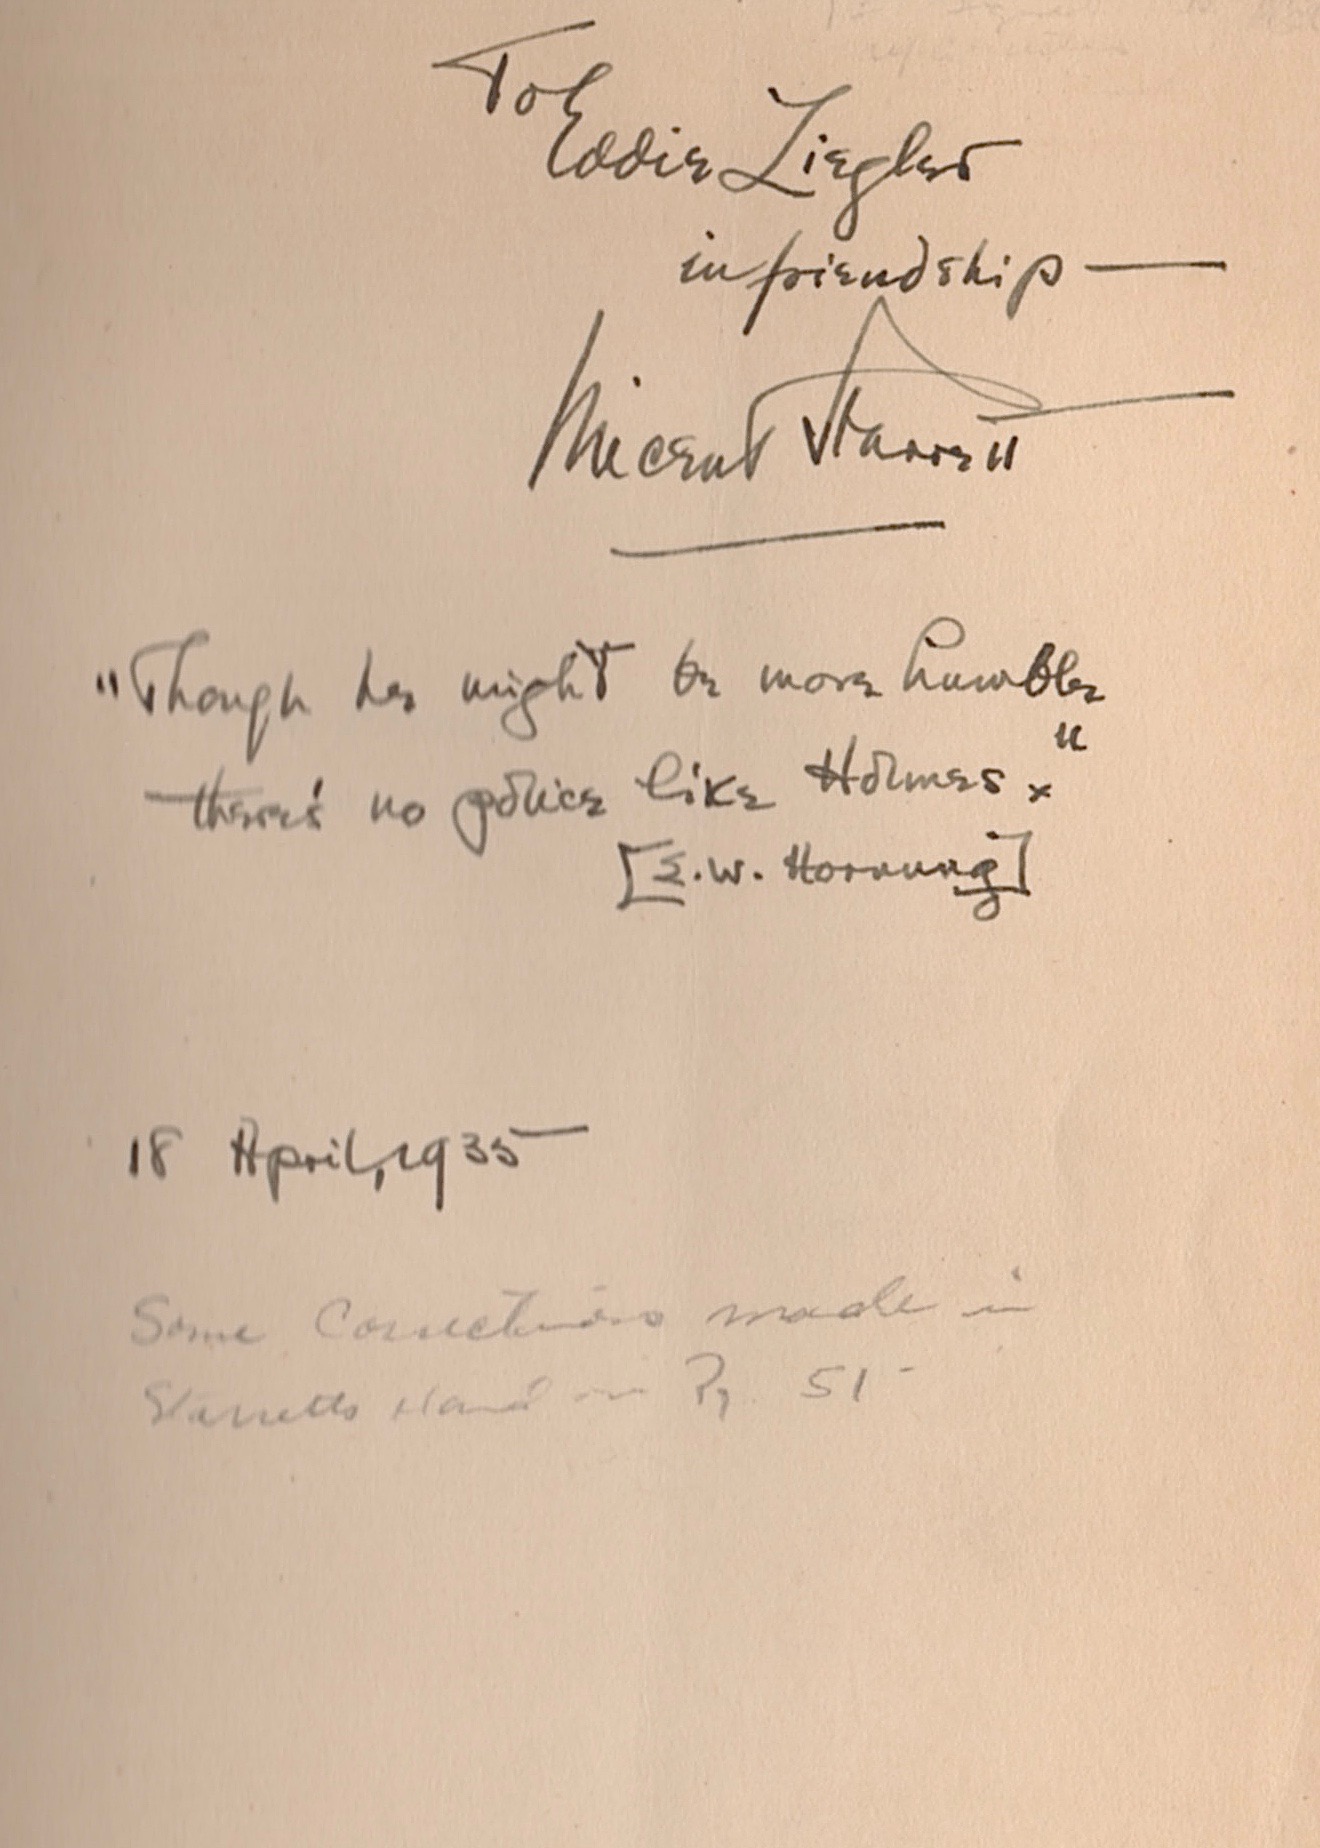 To
Eddie Ziegler
in friendship —
Vincent Starrett
"Though he might be more humble
there's no police like Holmes."
[E.W. Hornung]
18 April, 1935
Some Corrections made in
Starretts Hand on Pg. 51-